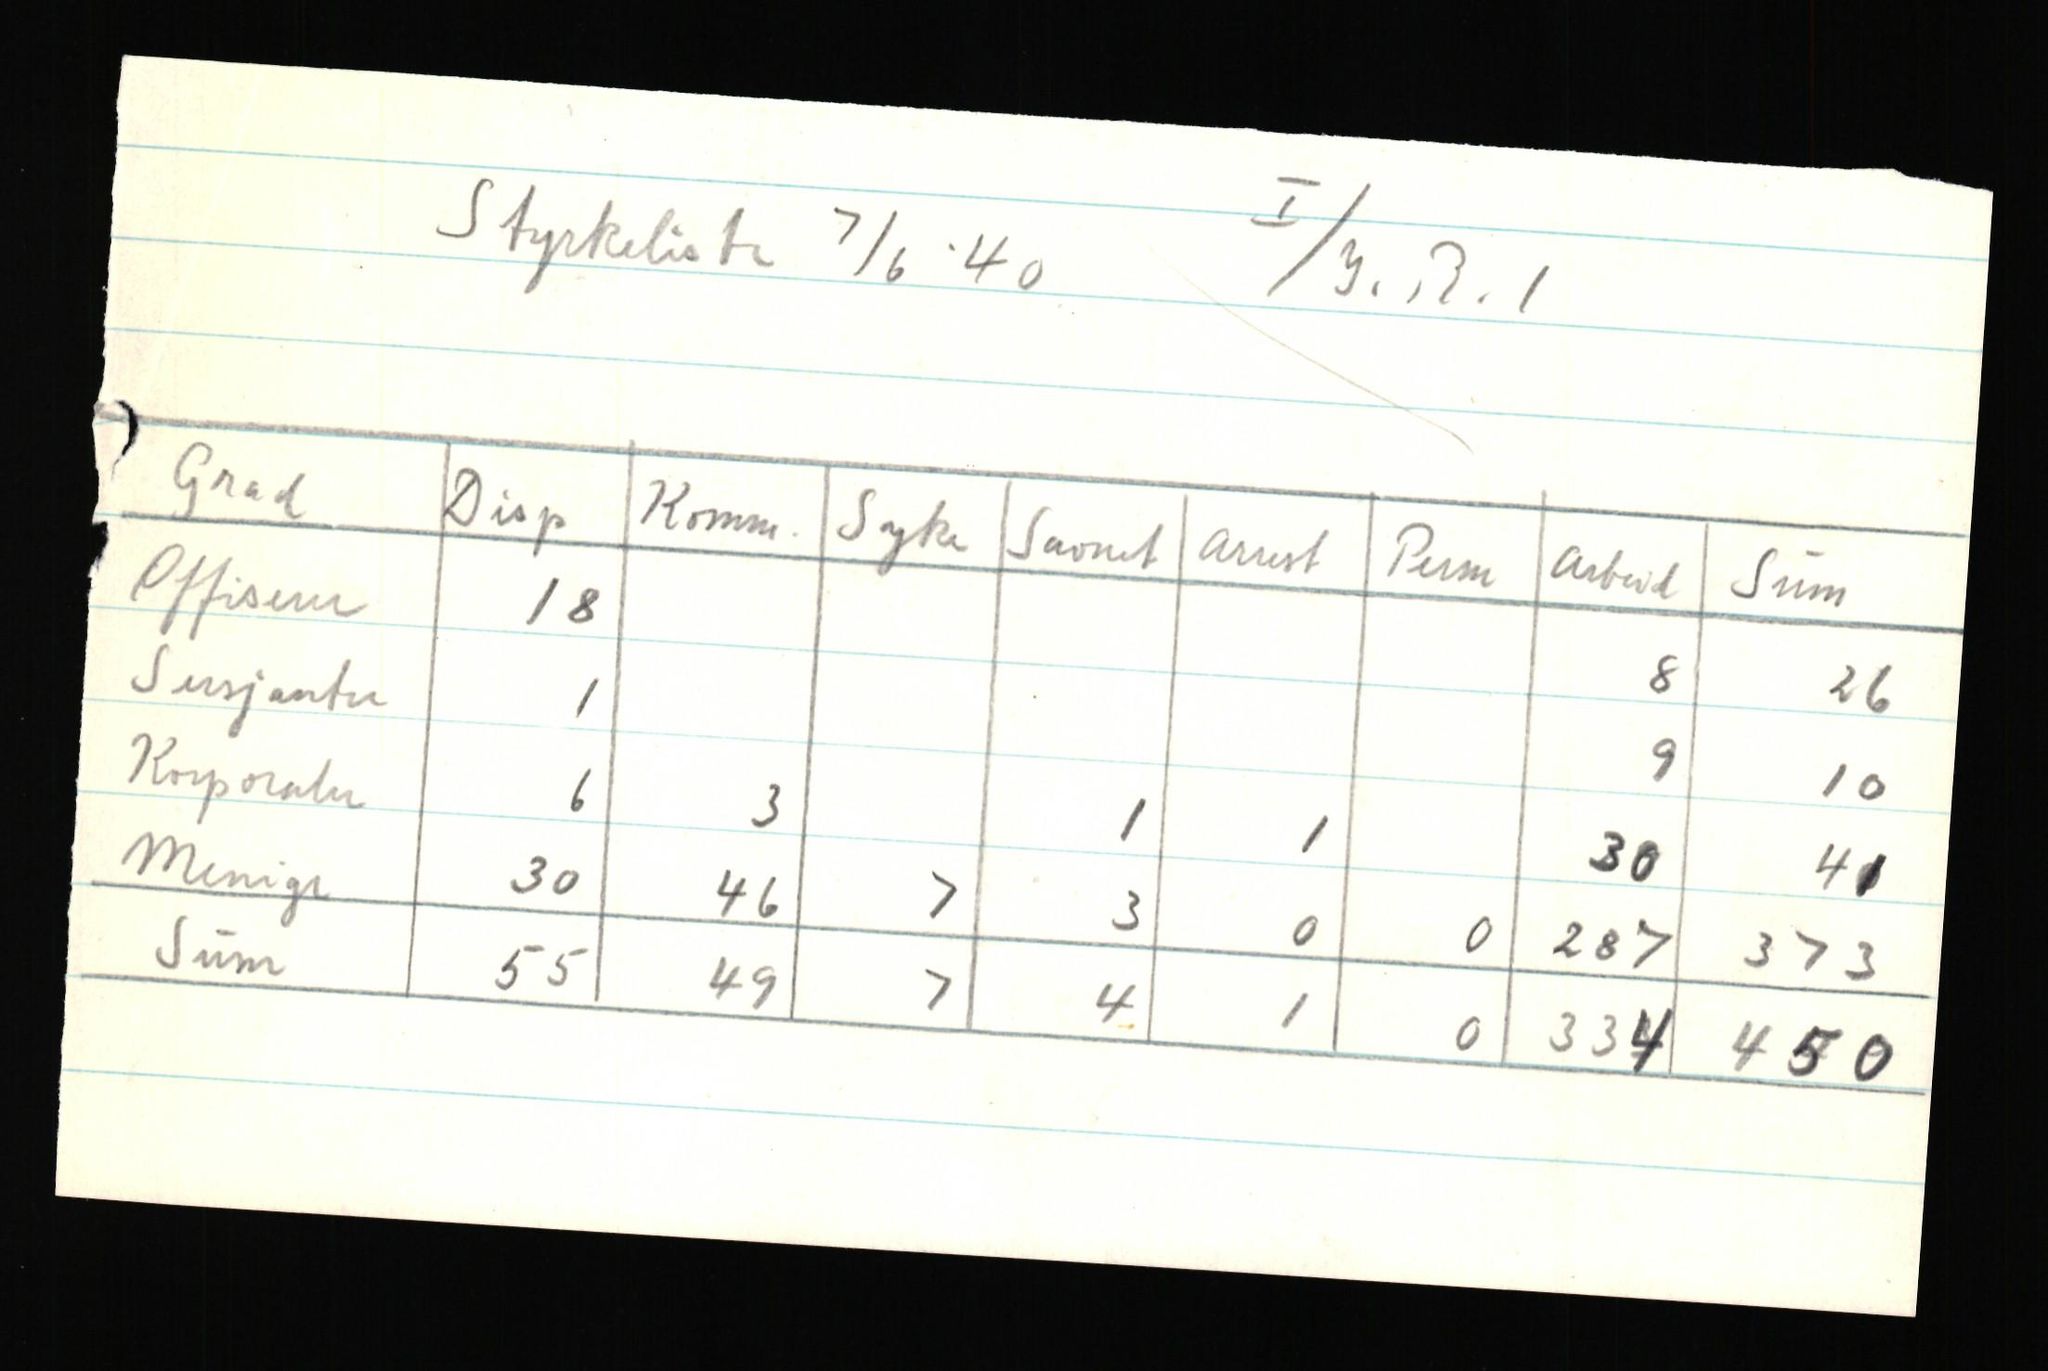 Styrkeliste 7/6-40 I/I.R.1
Grad Disp Komm. Syke Savnet Arrest Perm Arbeid Sum
Offiserer 18 8 26
Sersjanter 1 9 10
Korporaler 6 3 1 1 30 41
Menige 30 46 7 3 0 0 287 373
Sum 55 49 7 4 1 0 334 450